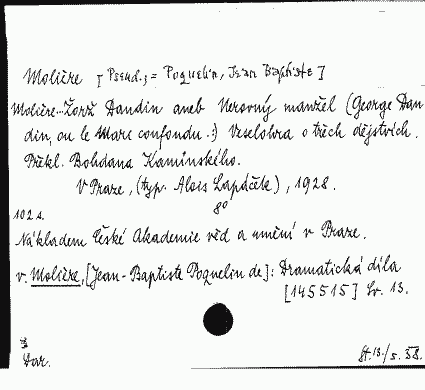 Molière [Pseud. ; = Poquelin, Jean Baptiste]
Molière...Žorž Dandin aneb Nerovný manžel (George Dan
din, ou le Mari confondu.:) Veselohra o třech dějstvích.
Překl. Bohdana Kaminského.
V Praze, (typ. Alois Lapáček), 1928.
8º
102 s.
Nákladem České Akademie věd a umění v Praze.
v. Molière, [Jean-Baptiste Poquelin de]: Dramatická díla
[145515] Sv. 13.
Dar.
St.13/s.38.